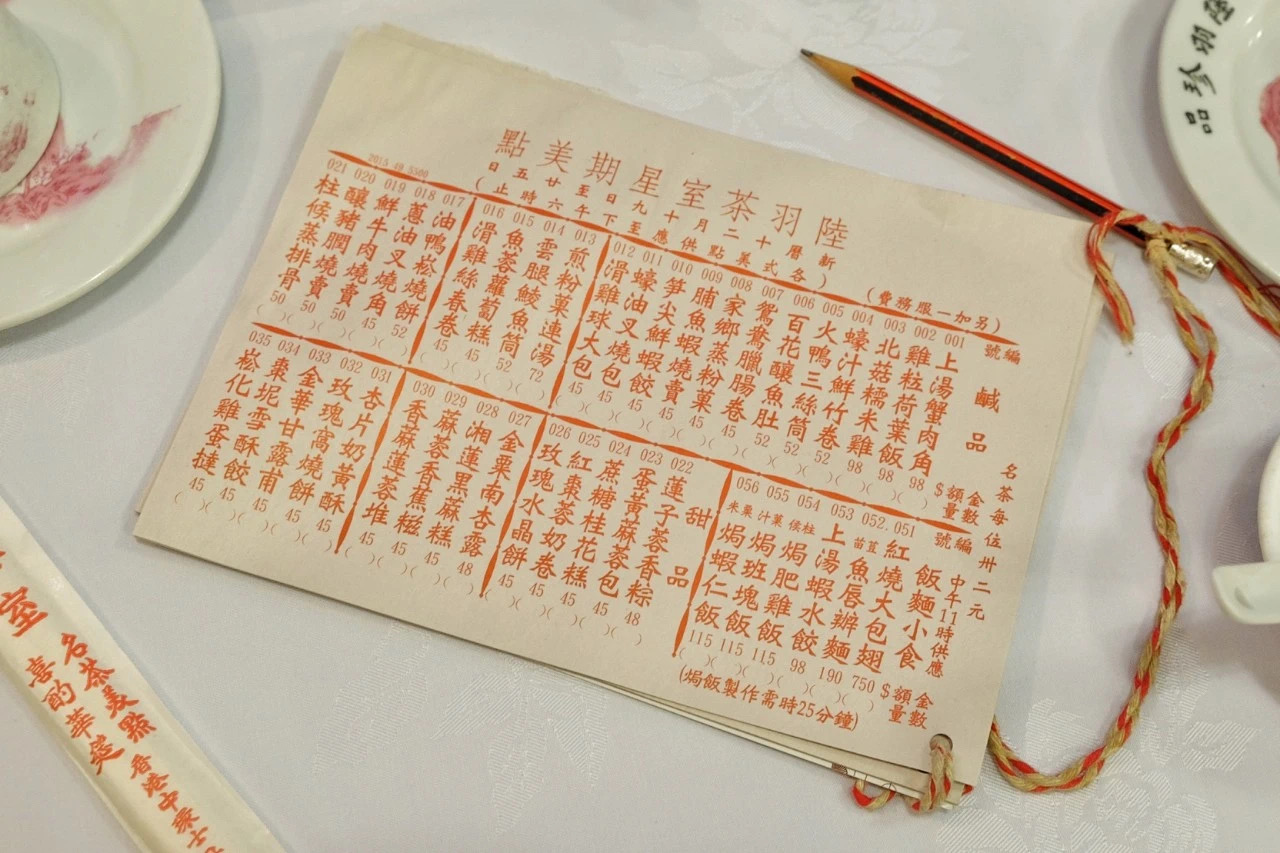 陸羽茶室星期美點
(新曆十二月十九日至廿五日
各式美點供應至下午六時止)
(另加一服務費)
2015 49 5500
鹹品
編號
金額$
數量
001 上湯蟹肉角 98 ( )
002 雞粒荷葉飯 98 ( )
003 北菇糯米雞 98 ( )
004 蠔汁鮮竹卷 52 ( )
005 火鴨三絲筒 52 ( )
006 百花釀魚肚 52 ( )
007 鴛鴦臘腸卷 45 ( )
008 家鄉蒸粉菓 45 ( )
009 脯魚蝦燒賣 45 ( )
010 笋尖鮮蝦餃 45 ( )
011 蠔油叉燒包 45 ( )
012 滑雞球大包 45 ( )
013 煎粉菓連湯 72 ( )
014 雲腿鯪魚筒 52 ( )
015 魚蓉蘿蔔糕 45 ( )
016 滑雞絲春卷 45 ( )
017 油鴨崧燒餅 52 ( )
018 蔥油叉燒角 45 ( )
019 鮮牛肉燒賣 50 ( )
020 釀豬膶燒賣 50 ( )
021 柱候蒸排骨 50 ( )
名茶每位卅二元
飯麵小食
中午11時供應
編號
金額$
數量
051 紅燒大包翅 750 ( )
052 苗荳魚唇辦麵 190 ( )
053 上湯蝦水餃 98 ( )
054 柱侯焗肥雞飯 115 ( )
055 菓汁焗班塊飯 115 ( )
056 粟米焗蝦仁飯 115 ( )
(焗飯製作需時25分鐘)
甜品
022 蓮子蓉香粽 48 ( )
023 蛋黃蔴蓉包 45 ( )
024 蔗糖桂花糕 45 ( )
025 紅棗蓉奶卷 45 ( )
026 玫瑰水晶餅 45 ( )
027 金栗南杏露 48 ( )
028 湘蓮黑蔴糕 45 ( )
029 蔴蓉香蕉糍 45 ( )
030 香蔴蓮蓉堆 45 ( )
031 杏片奶黃酥 45 ( )
032 玫瑰窩燒餅 45 ( )
033 全華甘露甫 45 ( )
034 棗坭雪酥餃 45 ( )
035 崧化雞蛋撻 45 ( )
陸羽珍品
室
名茶美點
喜酌華筵
香港中環士